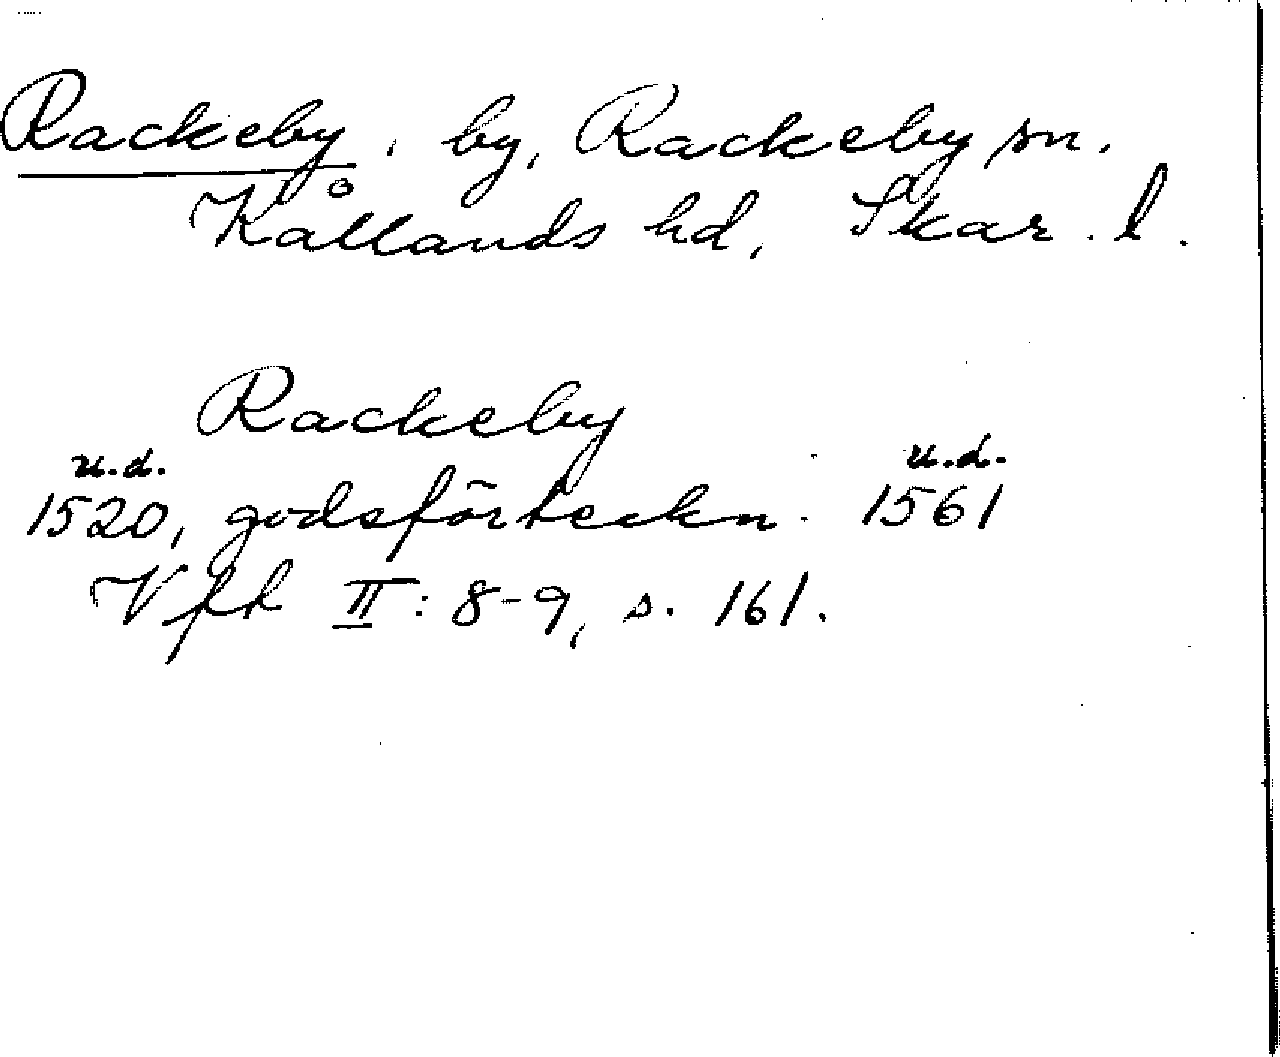 Rackeby, by, Rackeby sn.
Kållands hd, Skar. l.
Rackeby
u.d. u.d.
1520, godsförteckn. 1561
Vfh II: 8-9, s. 161.